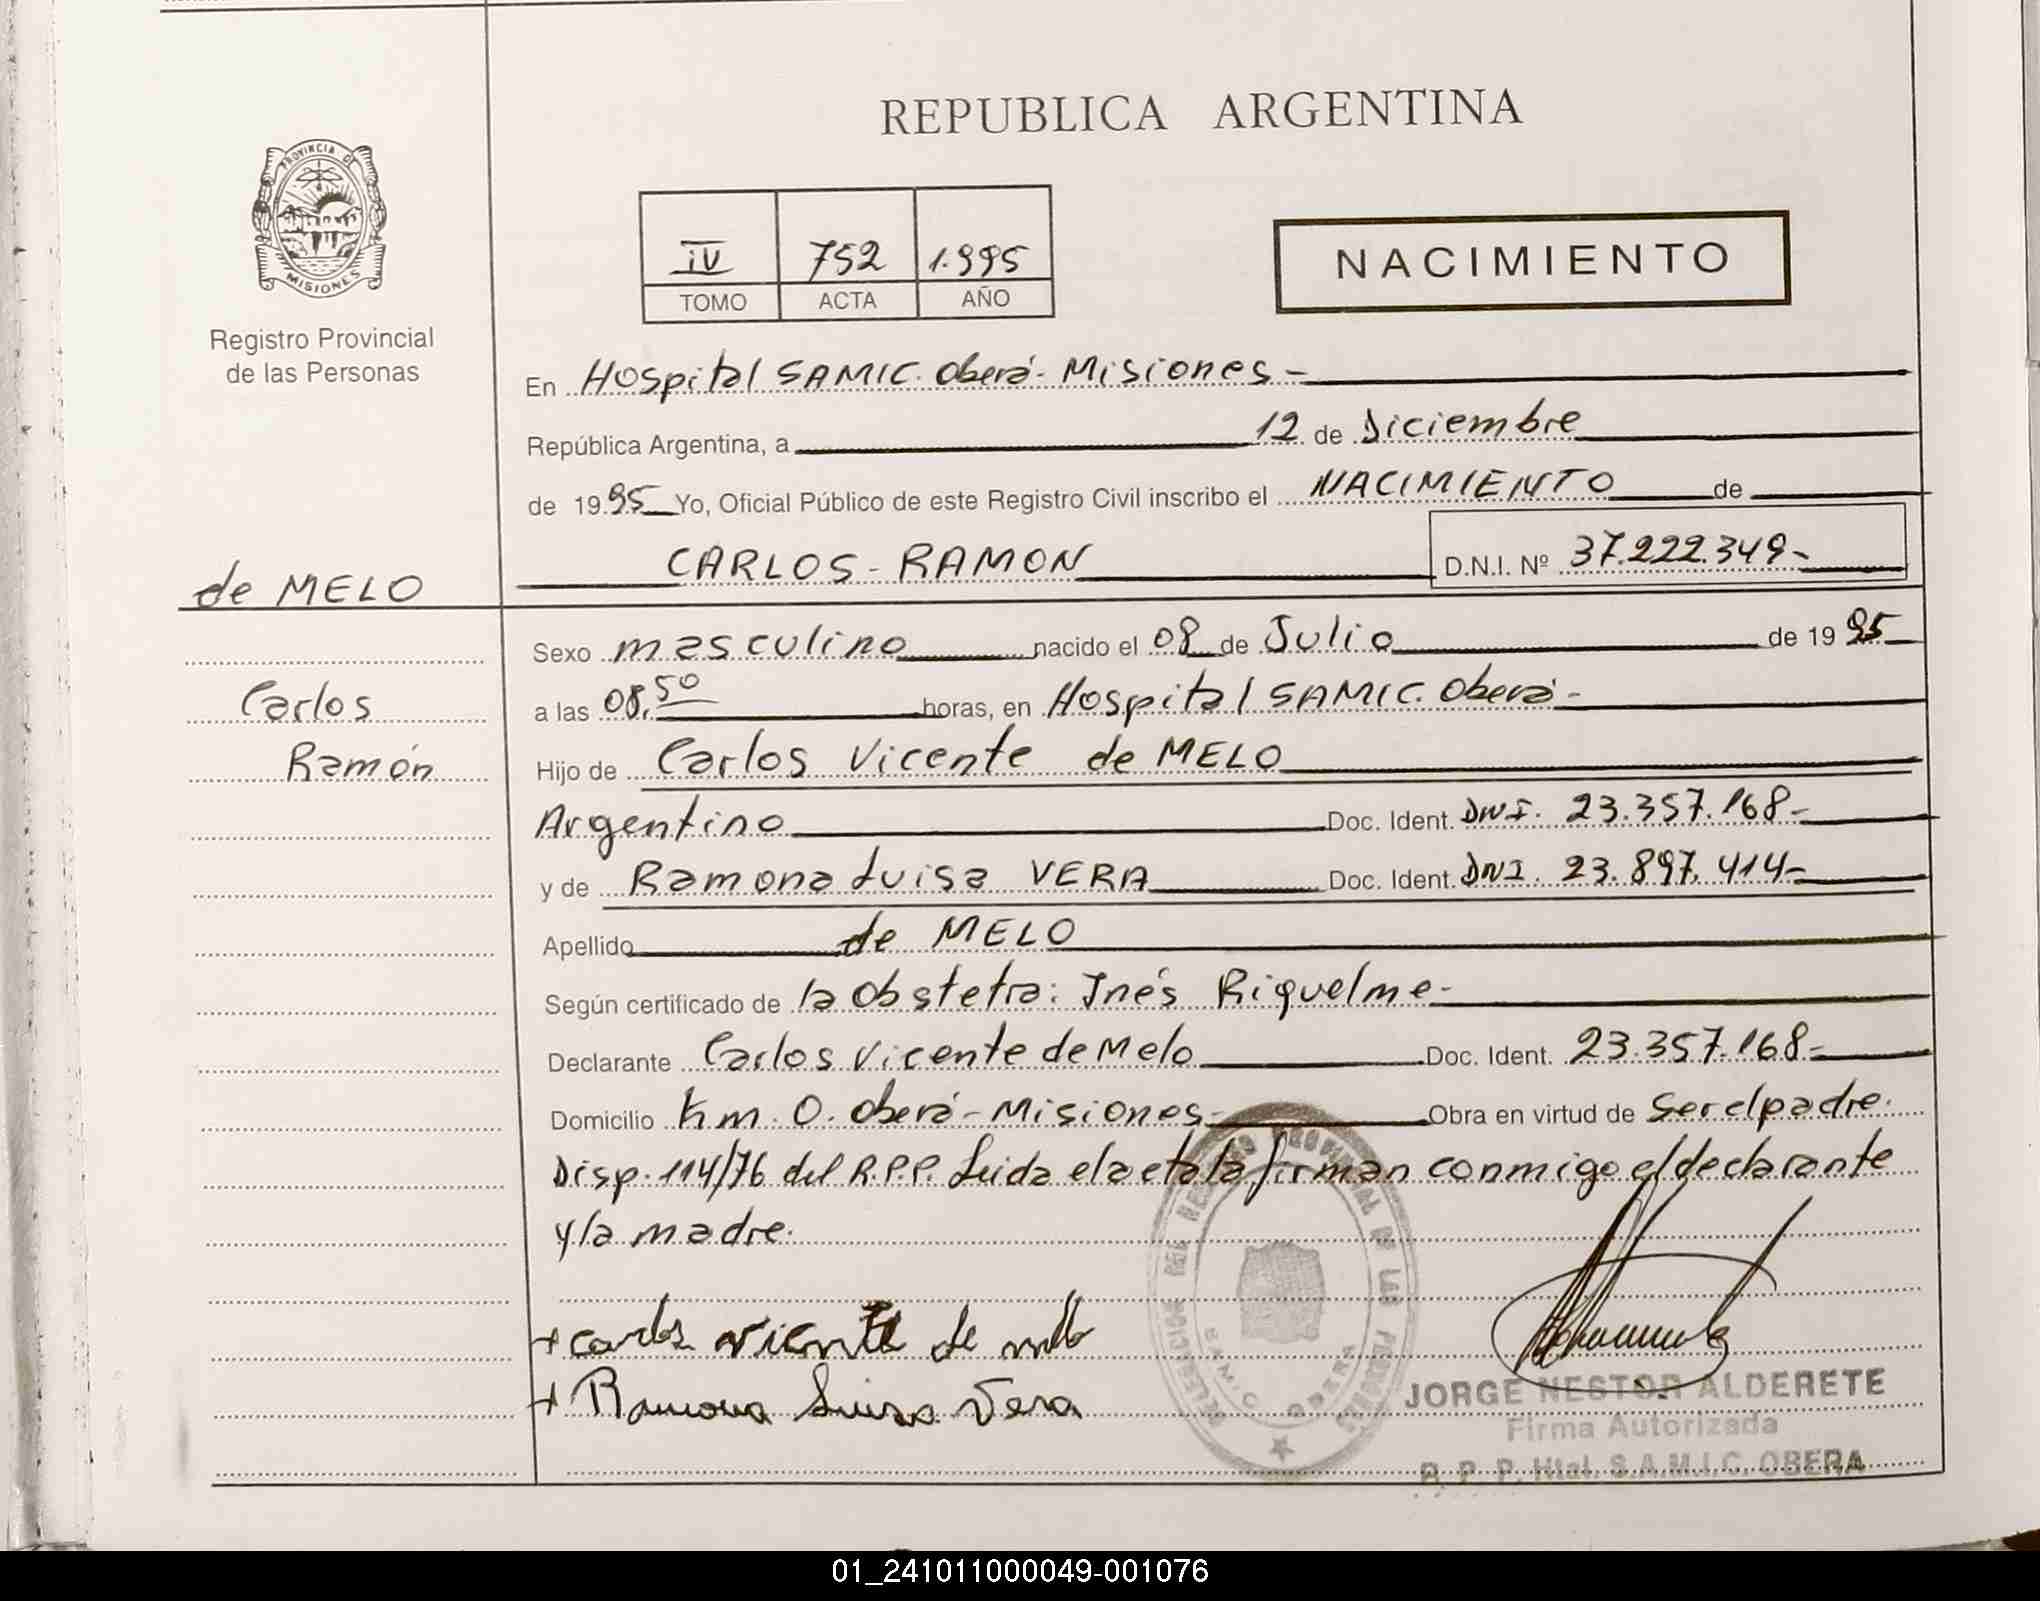 REPUBLICA ARGENTINA
PROVINCIA DE
MISIONES
Registro Provincial
de las Personas
IV 752 1.995
TOMO ACTA AÑO
NACIMIENTO
En Hospital SAMIC. Oberá - Misiones -
República Argentina, a 12 de Diciembre
de 1995 Yo, Oficial Público de este Registro Civil inscribo el NACIMIENTO de
CARLOS - RAMON D.N.I. Nº 37.222.349-
de MELO
Carlos
Ramón
Sexo masculino nacido el 08 de Julio de 1995
a las 08,50 horas, en Hospital SAMIC. Oberá -
Hijo de Carlos Vicente de MELO
Argentino Doc. Ident. DNI. 23.357.168-
y de Ramona Luisa VERA Doc. Ident. DNI. 23.897.414-
Apellido de MELO
Según certificado de la obstetra: Inés Riquelme-
Declarante Carlos Vicente de Melo Doc. Ident. 23.357.168-
Domicilio Km. 0. Oberá - Misiones - Obra en virtud de ser el padre.
Disp. 114/76 del R.P.P. Leida el acta la firman conmigo el declarante
y la madre.
+ carlos vicente de mello
+ Ramona Luisa Vera
JORGE NESTOR ALDERETE
Firma Autorizada
R. P. P. Htal. S.A.M.I.C. OBERA
DELEGACION DEL REGISTRO PROVINCIAL DE LAS PERSONAS
S.A.M.I.C. OBERA
01_241011000049-001076